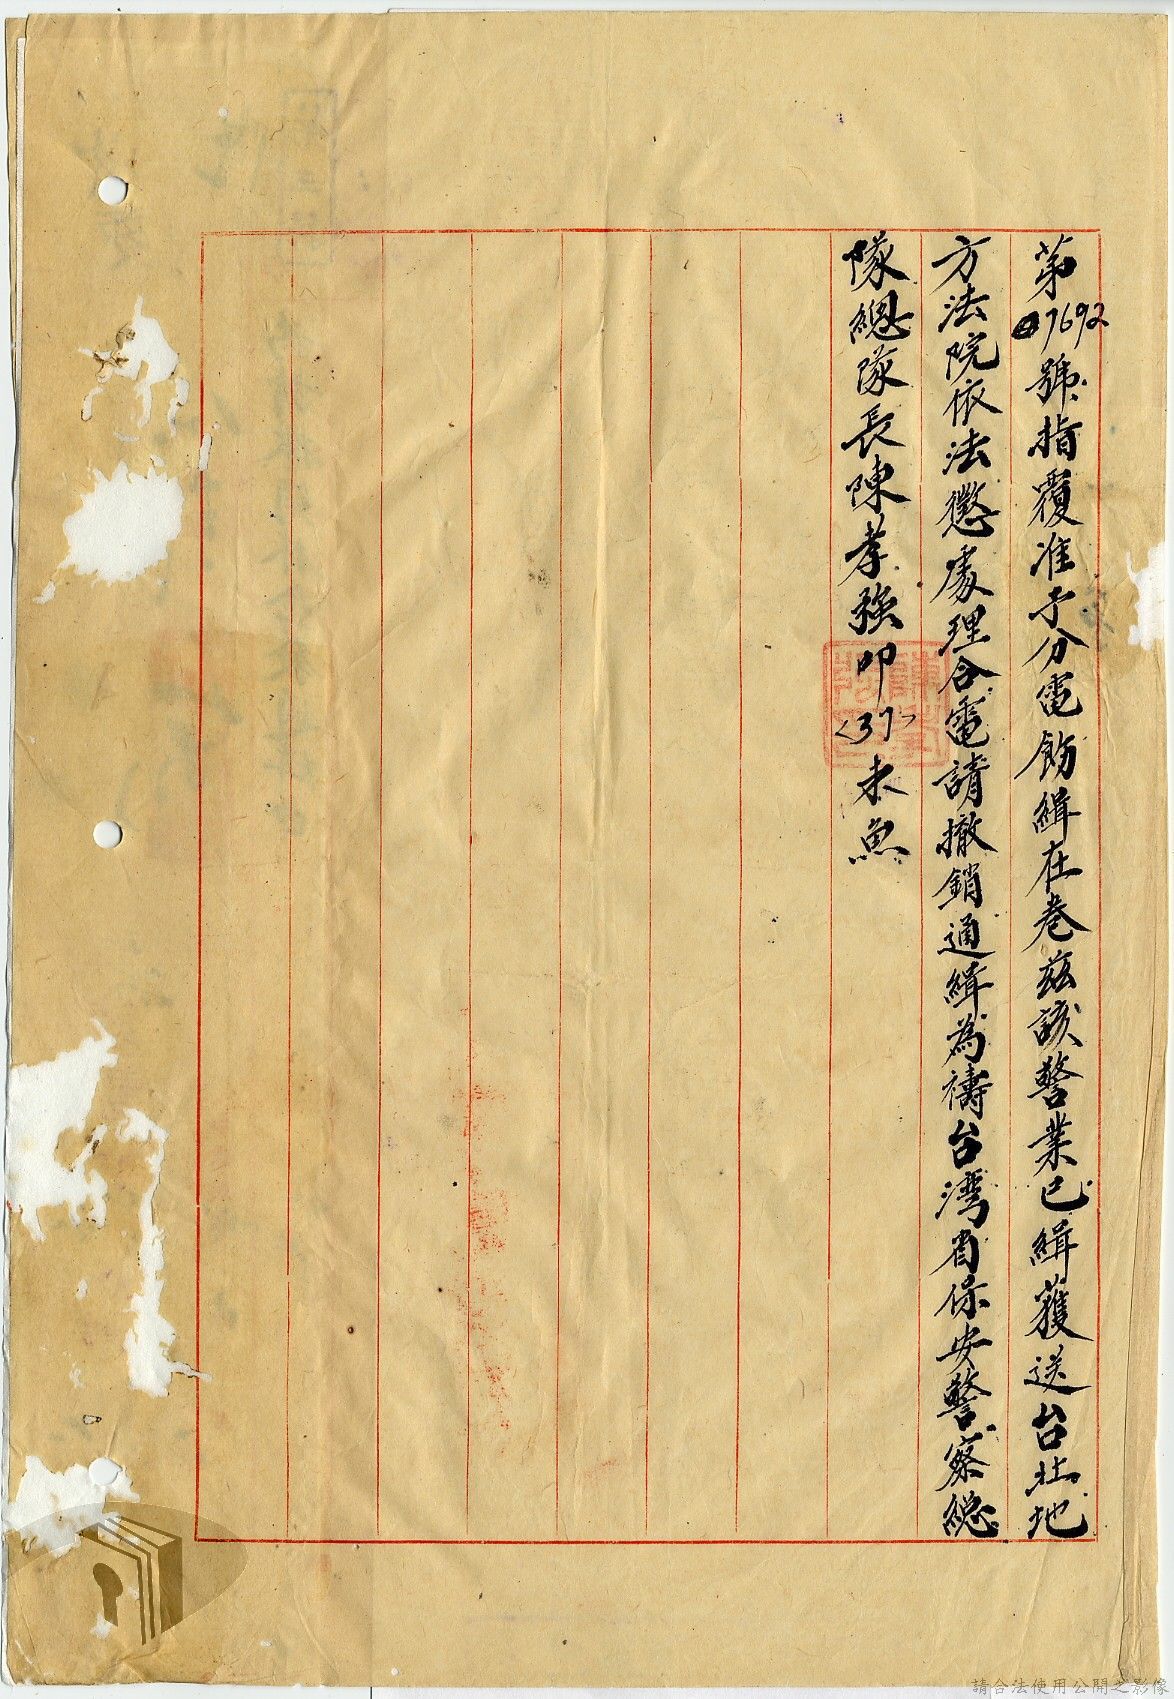 第07692號指覆准予分電飭緝在卷茲該警業已緝獲送台北地
方法院依法懲處理合電請撤銷通緝為禱台湾省保安警察總
隊總隊長陳孝強叩〈37〉未魚
請合法使用公開之影像